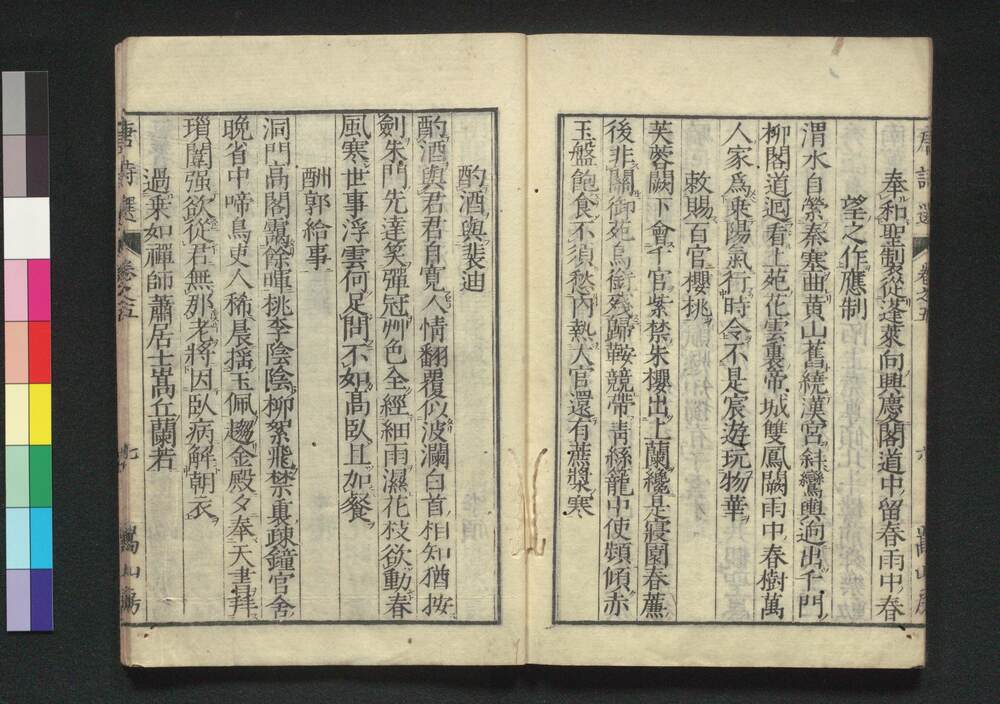 奉和聖製從蓬萊向興慶閣道中留春雨中春
望之作應制
渭水自縈秦塞曲黄山舊繞漢宮斜鸞輿逈出千門
柳閣道迴看上苑花雲裏帝城雙鳳闕雨中春樹萬
人家爲乘陽氣行時令不是宸遊玩物華
敕賜百官櫻桃
芙蓉闕下會千官紫禁朱櫻出上蘭纔是寝園春薦
後非關御苑鳥銜殘歸鞍競帶青絲籠中使頻傾赤
玉盤飽食不須愁内熱大官還有蔗漿寒
唐詩選
卷之五
酌酒與裴迪
酌酒與君君自寬人情翻覆似波瀾白首相知猶按
劍朱門先達笑彈冠艸色全經細雨濕花枝欲動春
風寒世事浮雲何足問不如髙臥且加餐
酬郭給事
洞門髙閣靄餘暉桃李陰陰柳絮飛禁裏疎鐘官舍
晩省中啼鳥吏人稀晨揺玉佩趨金殿夕奉天書拜
瑣闈强欲從君無那老將因臥病解朝衣
過乗如禪師蕭居士嵩丘蘭若
唐詩選
卷之五